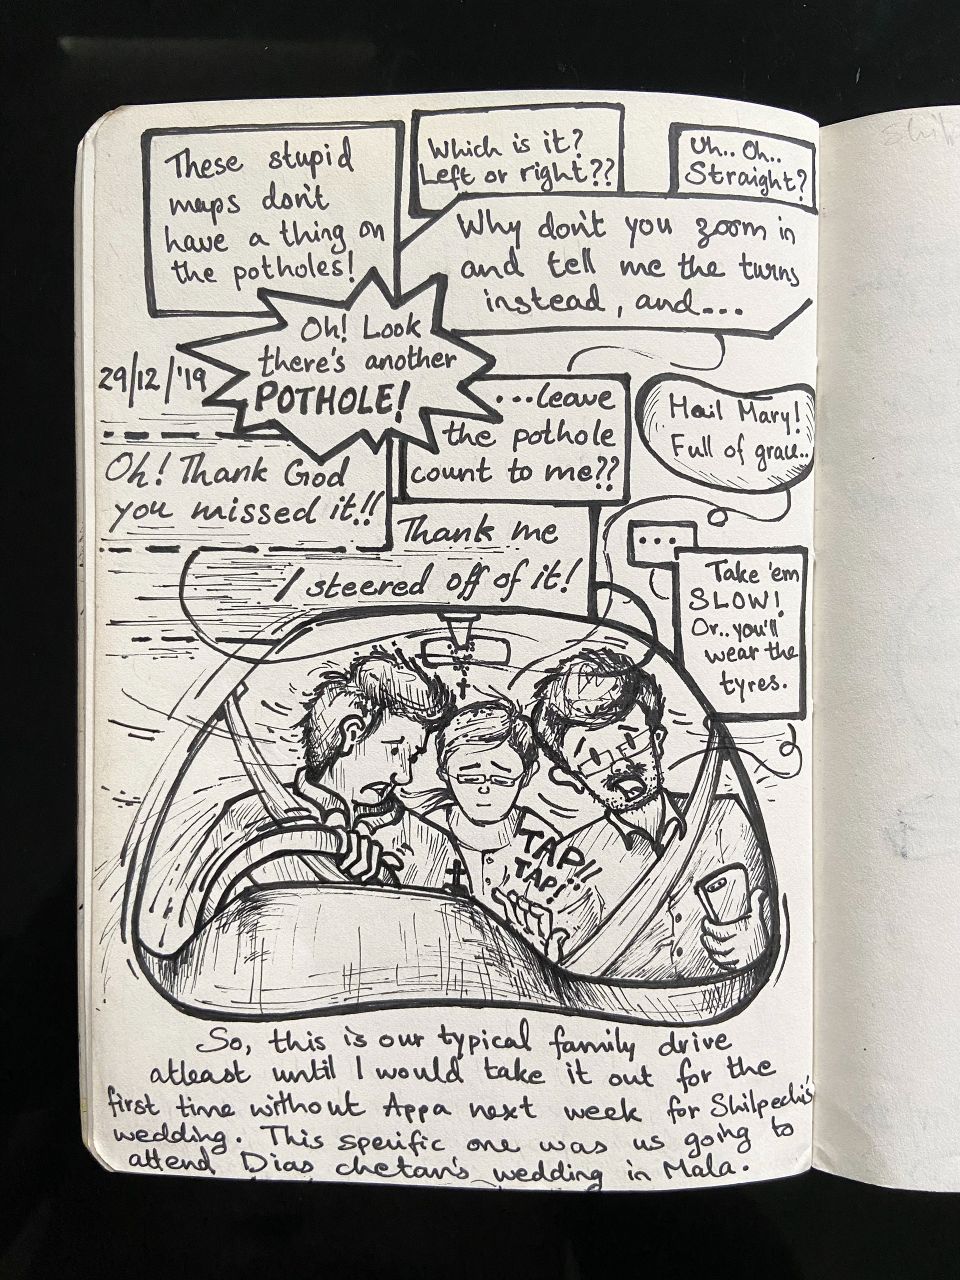 These stupid
maps don't
have a thing on
the potholes!
Which is it?
Left or right??
Uh.. Oh..
Straight?
Why don't you zoom in
and tell me the turns
instead, and...
Oh! Look
there's another
POTHOLE!
29/12/'19
...leave
the pothole
count to me??
Hail Mary!
Full of grace..
Oh! Thank God
you missed it!!
Thank me
I steered off of it!
...
Take 'em
SLOW!
Or.. you'll
wear the
tyres.
TAP!!
TAP!!
So, this is our typical family drive
atleast until I would take it out for the
first time without Appa next week for Shilpechi's
wedding. This specific one was us going to
attend Dias chetan's wedding in Mala.